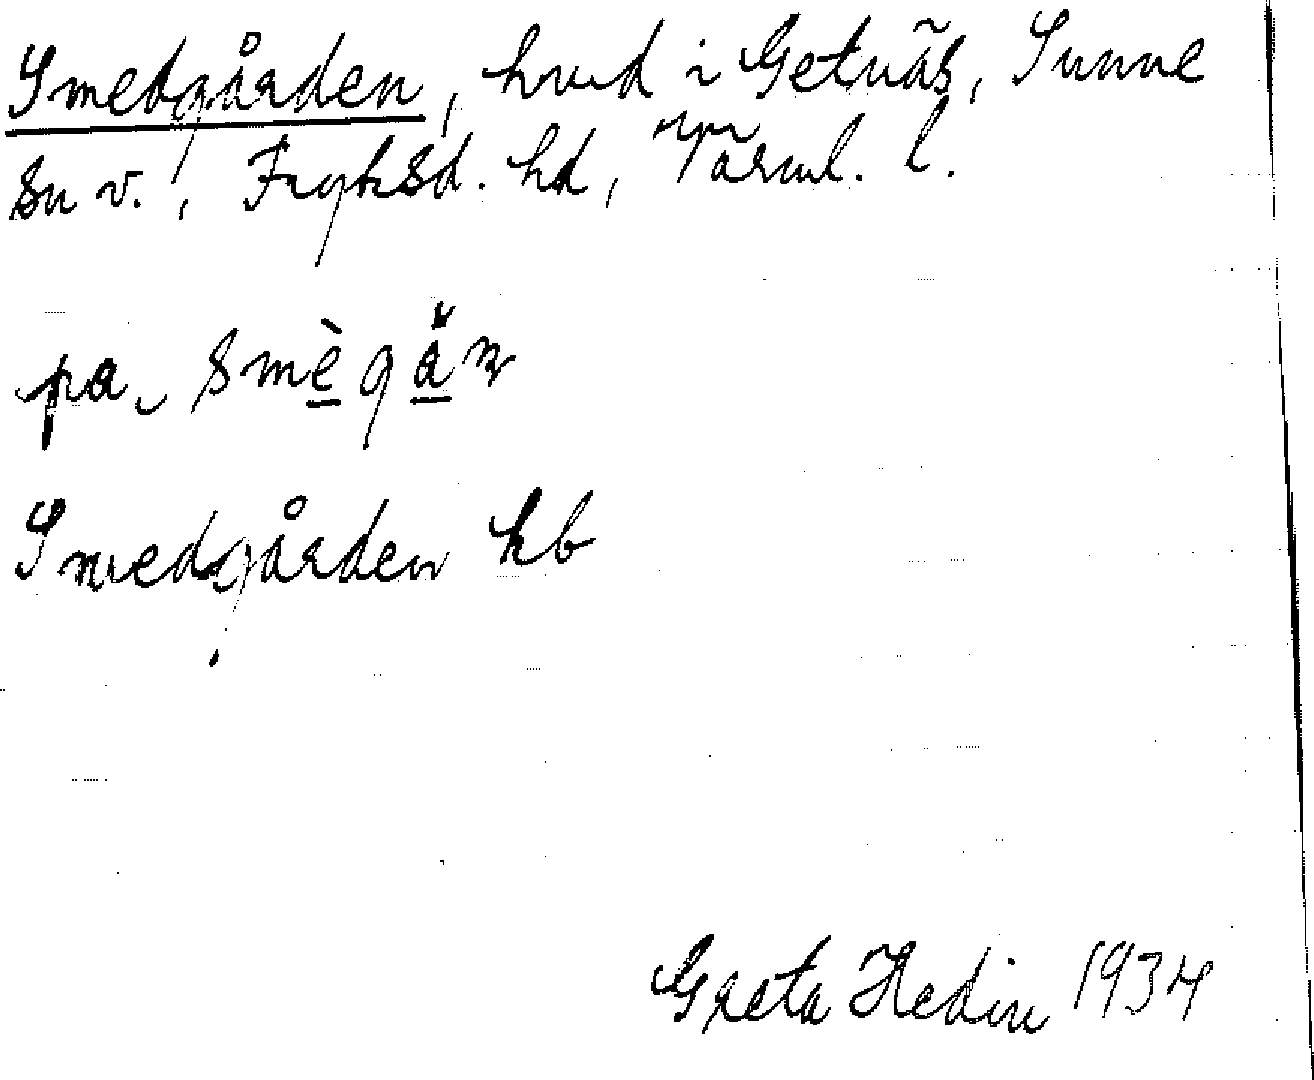 Smedgården, hmd i Getnäs, Sunne
sn v., Fryksd. hd, Värml. l.
pa, smè̱gå̱̆ṇ
Smedgården kb
Greta Hedin 1934